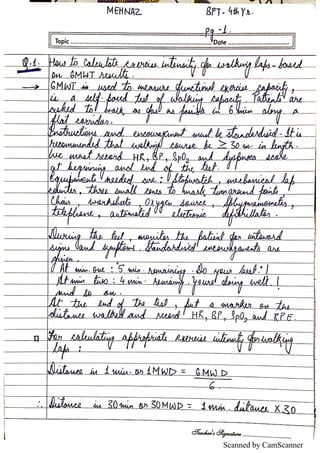 MEHNAZ BPT - 4th Yr.
Pg - 1
Topic Date
Q.1. How to Calculate Exercise intensity for walking laps - based
on 6MWT result.
→ 6MWT is used to measure functional exercise capacity,
is a self paced test of walking capacity. Patients are
asked to walk as far as possible in 6 min along a
flat corridor.
Instructions and encouragement must be standardised. It is
recommended that walking course be ≥ 30 m in length.
We must record HR, BP, SpO2 and dyspnoea scale
at beginning and end of the test.
Equipments needed are : Stopwatch, mechanical lap
counter, three small cones to mark turnaround points,
Chair, worksheets Oxygen source, Sphygmomanometer,
telephone, automated electronic defibrillator.
During the test, monitor the patient for untoward
signs and symptoms. Standardised encouragements are
given.
At min one : 5 min remaining. Do your best!
At min two : 4 min. remaining. You're doing well!
and so on.
At the end of the test, put a marker on the
distance walked and record HR, BP, SpO2 and RPE.
For calculating appropriate exercise intensity for walking
laps :
Distance in 1 min. or 1MWD = 6MWD
6
∴ Distance in 30 min or 30MWD = 1 min. distance X 30
Teacher's Signature
Scanned by CamScanner